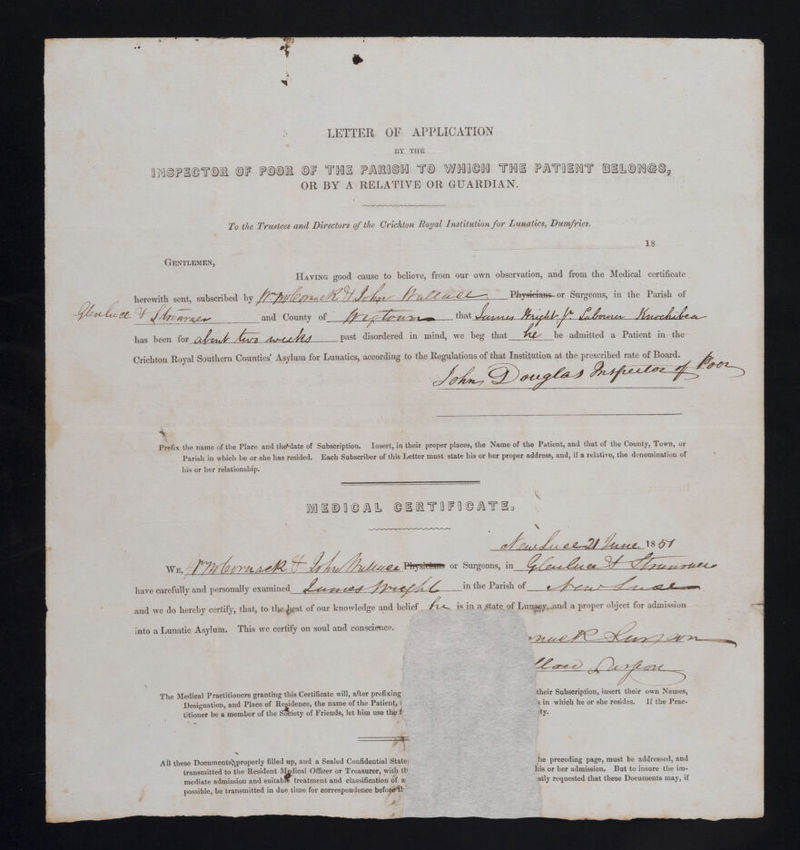 LETTER OF APPLICATION
BY THE
INSPECTOR OF POOR OF THE PARISH TO WHICH THE PATIENT BELONGS,
OR BY A RELATIVE OR GUARDIAN.
To the Trustees and Directors of the Crichton Royal Institution for Lunatics, Dumfries.
18
GENTLEMEN,
HAVING good cause to believe, from our own observation, and from the Medical certificate
herewith sent, subscribed by McCormack & John Wallace Physicians or Surgeons, in the Parish of
Glenluce & Stranraer and County of Wigtown that James Wright Jr Labourer Knockibea
has been for about two weeks past disordered in mind, we beg that he be admitted a Patient in the
Crichton Royal Southern Counties' Asylum for Lunatics, according to the Regulations of that Institution at the prescribed rate of Board.
John Douglas Inspector of Poor
Prefix the name of the Place and the date of Subscription. Insert, in their proper places, the Name of the Patient, and that of the County, Town, or
Parish in which he or she has resided. Each Subscriber of this Letter must state his or her proper address, and, if a relative, the denomination of
his or her relationship.
MEDICAL CERTIFICATE.
New Luce 21 June 1851
WE, McCormack & John Wallace Physicians or Surgeons, in Glenluce & Stranraer
have carefully and personally examined James Wright in the Parish of New Luce
and we do hereby certify, that, to the best of our knowledge and belief he is in a state of Lunacy, and a proper object for admission
into a Lunatic Asylum. This we certify on soul and conscience.
mack Surgeon
llace Surgeon
The Medical Practitioners granting this Certificate will, after prefixing their Subscription, insert their own Names,
Designation, and Place of Residence, the name of the Patient, in which he or she resides. If the Prac-
titioner be a member of the Society of Friends, let him use the
All these Documents, properly filled up, and a Sealed Confidential State he preceding page, must be addressed, and
transmitted to the Resident Medical Officer or Treasurer, with his or her admission. But to insure the im-
mediate admission and suitable treatment and classification of atly requested that these Documents may, if
possible, be transmitted in due time for correspondence before